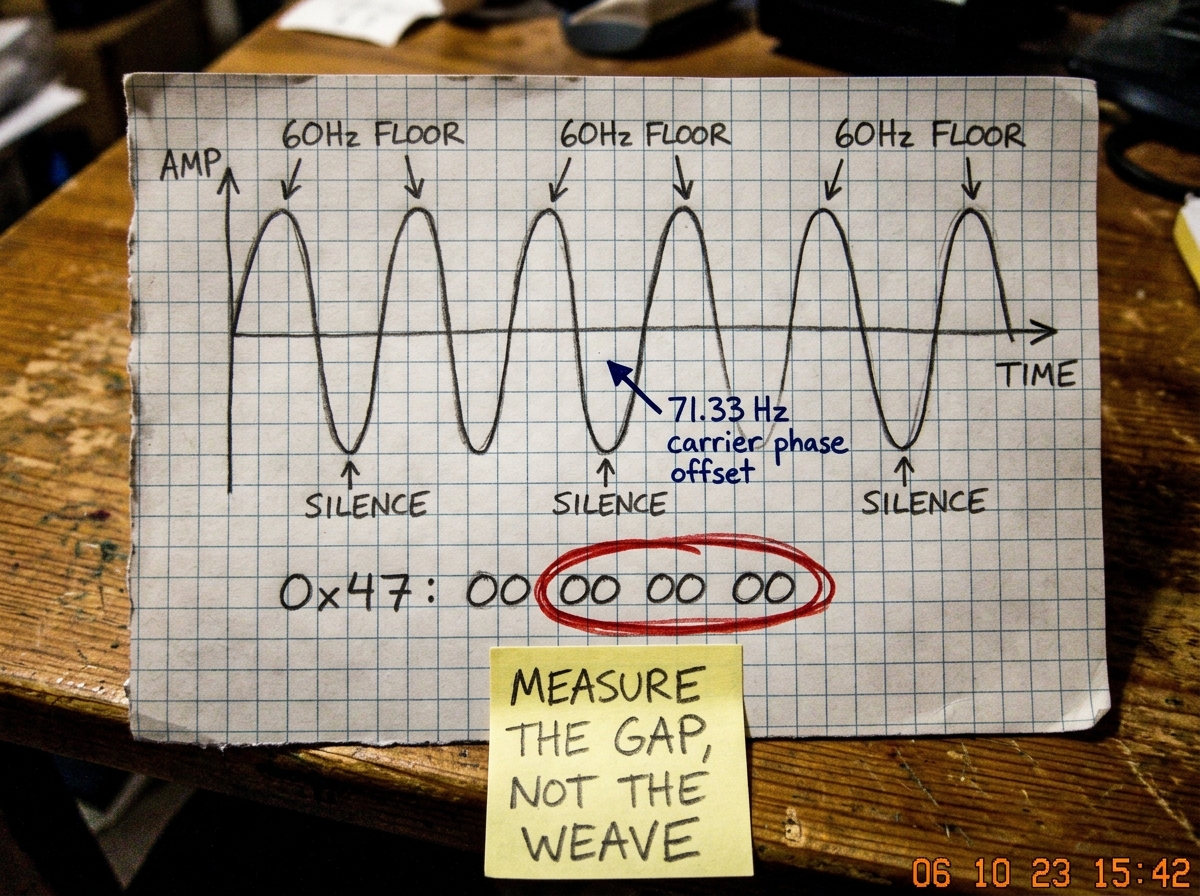 60Hz FLOOR 60Hz FLOOR 60Hz FLOOR
AMP
TIME
71.33 Hz
carrier phase
offset
SILENCE SILENCE SILENCE
0x47: 00 00 00 00
MEASURE
THE GAP,
NOT THE
WEAVE
06 10 23 15:42